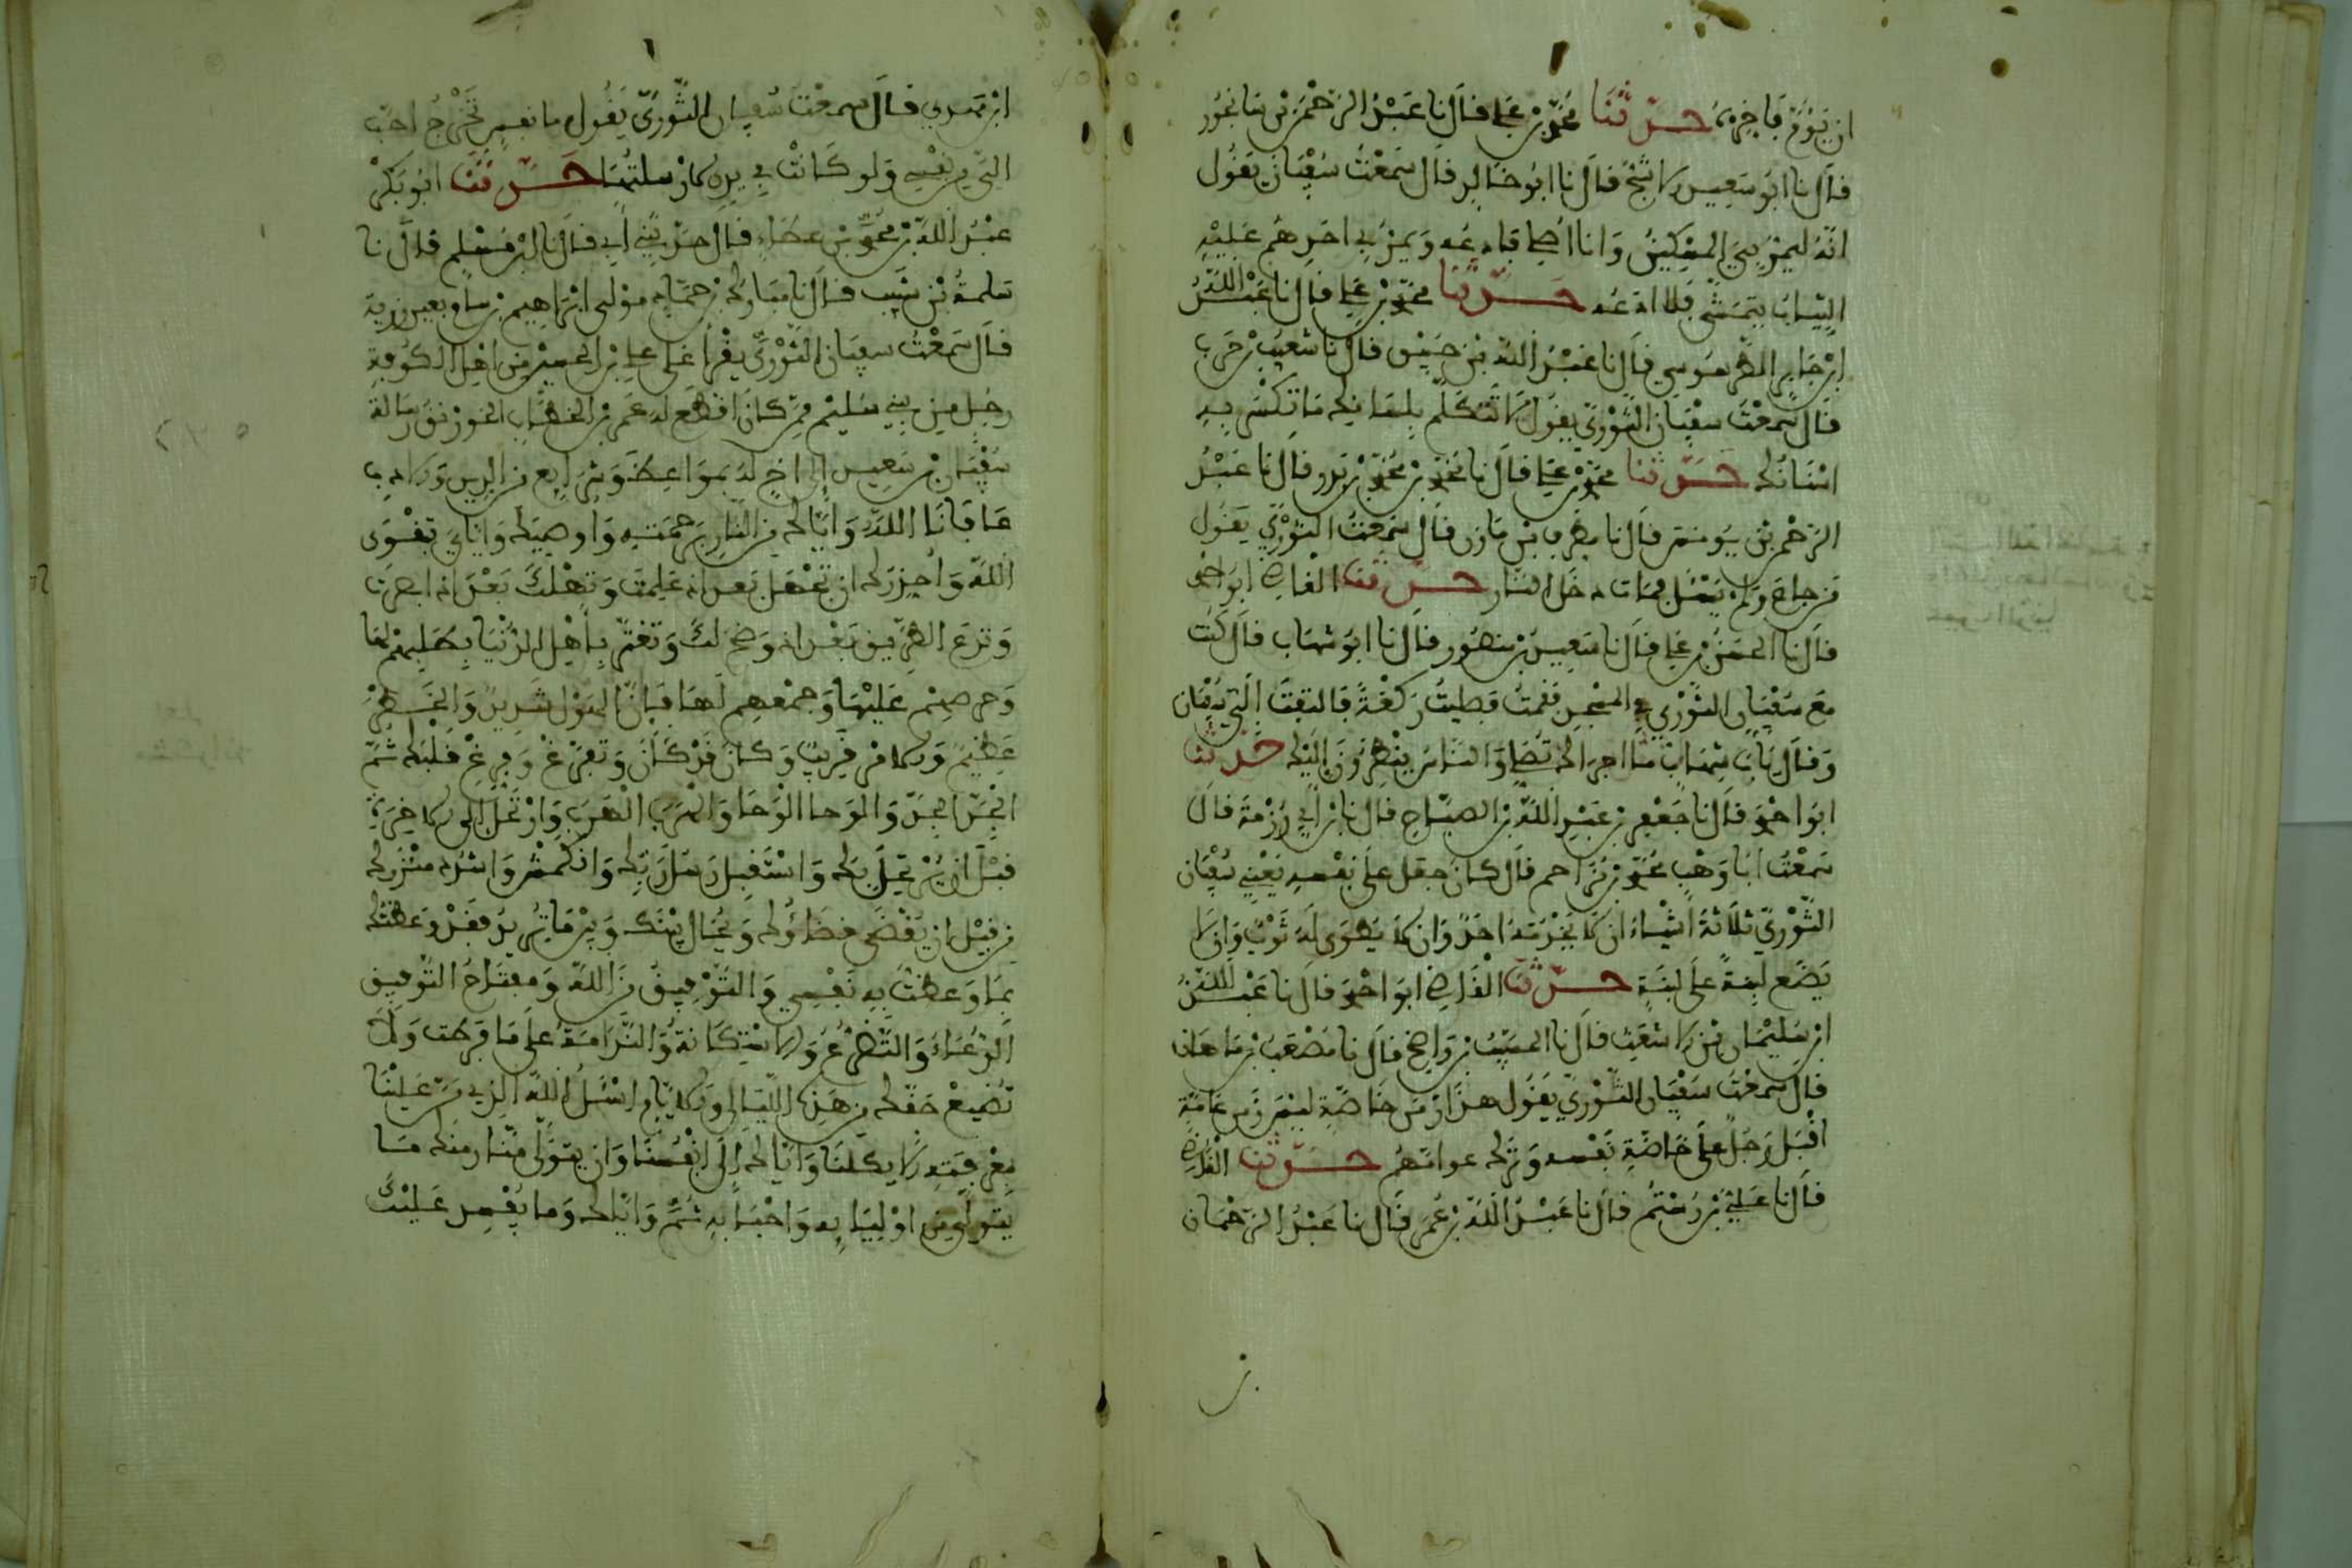 ان يؤخر فاخره حدثنا محمد بن علي قال نا عبد الرحمن بن سانجور
قال نا ابو سعيد الاشج قال نا ابو خالد قال سمعت سفيان يقول
انه ليمر بي المسكين وانا اصلي فادعه ويمر بي احدهم عليه
الثياب يتمشى فلا ادعه حدثنا محمد بن علي قال نا عبد الله
ابن جابر الطرسوسي قال نا عبد الله بن خبيق قال نا شعيب بن حرب
قال سمعت سفيان الثوري يقول لا تتكلم بلسانك ما تكسر به
اسنانك حدثنا محمد بن علي قال نا محمد بن محمد بن بدر قال نا عبد
الرحمن بن يونس قال نا مطرف بن مازن قال سمعت الثوري يقول
من جاع ولم يسئل فمات دخل النار حدثنا القاضي ابو احمد
قال نا الحسن بن علي قال نا سعيد بن منصور قال نا ابو شهاب قال كنت
مع سفيان الثوري في المسجد فقمت فصليت ركعة فالتفت الي سفيان
وقال يابا شهاب ما اجراك تصلي والناس ينظرون اليك حدثنا
ابو احمد قال نا جعفر بن عبد الله بن الصباح قال نا بن ابي رزمة قال
سمعت ابا وهب محمد بن مزاحم قال كان جعل على نفسه يعني سفيان
الثوري ثلاثة اشياء ان لا يخدمه احد وان لا يطوى له ثوب وان لا
يضع لبنة على لبنة حدثنا القاضي ابو احمد قال نا عبد الله
ابن سليمان بن الاشعث قال نا المسيب بن واضح قال نا مصعب بن ماهان
قال سمعت سفيان الثوري يقول هذا زمن خاصة ليس زمن عامة
اقبل رجل على خاصة نفسه وترك عوامهم حدثنا القاضي
قال نا علي بن رستم قال نا عبد الله بن عمر قال نا عبد الرحمان
ابن مهدي قال سمعت سفيان الثوري يقول ما نفس تخرج احب
الي من نفسي ولو كانت في يدي لارسلتها حدثنا ابو بكر
عبد الله بن محمد بن عطاء قال حدثني ابي قال نا ابن مسلم قال نا
سلمة بن شبيب قال نا مبارك بن حماد مولى ابراهيم بن سام بعين زربة
قال سمعت سفيان الثوري يقرا على علي بن الحسن من اهل الكوفة
رجل من بني سليم ممن كان اقطع له عمر بن الخطاب الخورنق رسالة
سفيان بن سعيد الى اخ له بمواعظ وشرايع من الدين والادب
عافانا الله واياك من النار برحمته واوصيك واياي بتقوى
الله واحذرك ان تجهل بعد اذ علمت وتهلك بعد اذ ابصرت
وتدع الطريق بعد اذ وضح لك وتغتر باهل الدنيا بطلبهم لها
وحرصهم عليها وجمعهم لها فان الهول شديد والخطر
عظيم والامر قريب وكان قد كان وتفرغ وفرغ قلبك ثم
الجد الجد والوحا الوحا والهرب الهرب وارتحل الى الاخرة
قبل ان يرتحل بك واستقبل رسل ربك وانكمش واشدد مئزرك
من قبل ان يقضى قضاؤك ويحال بينك وبين ما تريد فقد وعظتك
بما وعظت به نفسي والتوفيق من الله ومفتاح التوفيق
الدعاء والتضرع والاستكانة والندامة على ما فرطت ولا
تضيع حقك من هذه الليالي والايام اسئل الله الذي من علينا
بمعرفته الا يكلنا واياك الى انفسنا وان يتولى منا ومنك ما
يتولى من اوليايه واحبابه ثم واياك وما يفسد عليك